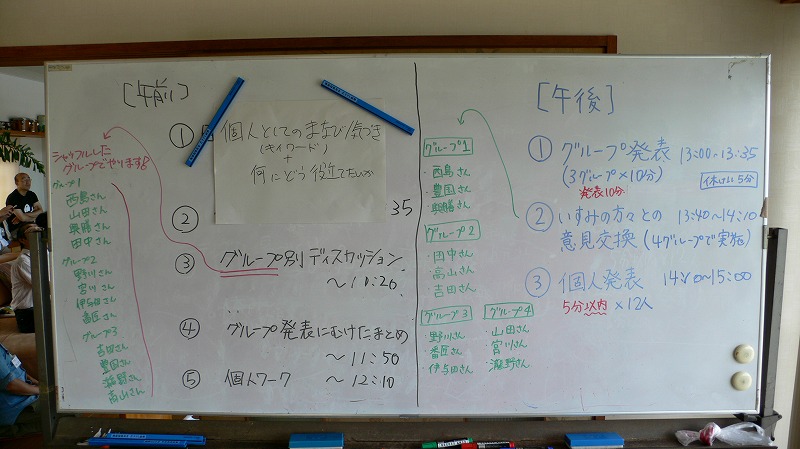 [午前]
シャッフルした
グループでやります!
グループ1
西島さん
山田さん
奥勝さん
田中さん
グループ2
野川さん
宮川さん
伊与田さん
グループ3
吉田さん
豊国さん
高山さん
①
個人としてのまなび/気づき
(キイワード)
+
何にどう役立てたいか
②
35
③ グループ別ディスカッション
~11:20
④ グループ発表にむけたまとめ
~11:50
⑤ 個人ワーク ~12:10
グループ1
・西島さん
・豊国さん
・奥勝さん
グループ2
・田中さん
・高山さん
・吉田さん
グループ3
・野川さん
・伊与田さん
グループ4
・山田さん
・宮川さん
・瀧野さん
[午後]
① グループ発表 13:00~13:35
(3グループ×10分) 休けい5分
発表10分
② いすみの方々との 13:40~14:10
意見交換(4グループで実施)
③ 個人発表 14:10~15:00
5分以内×12人